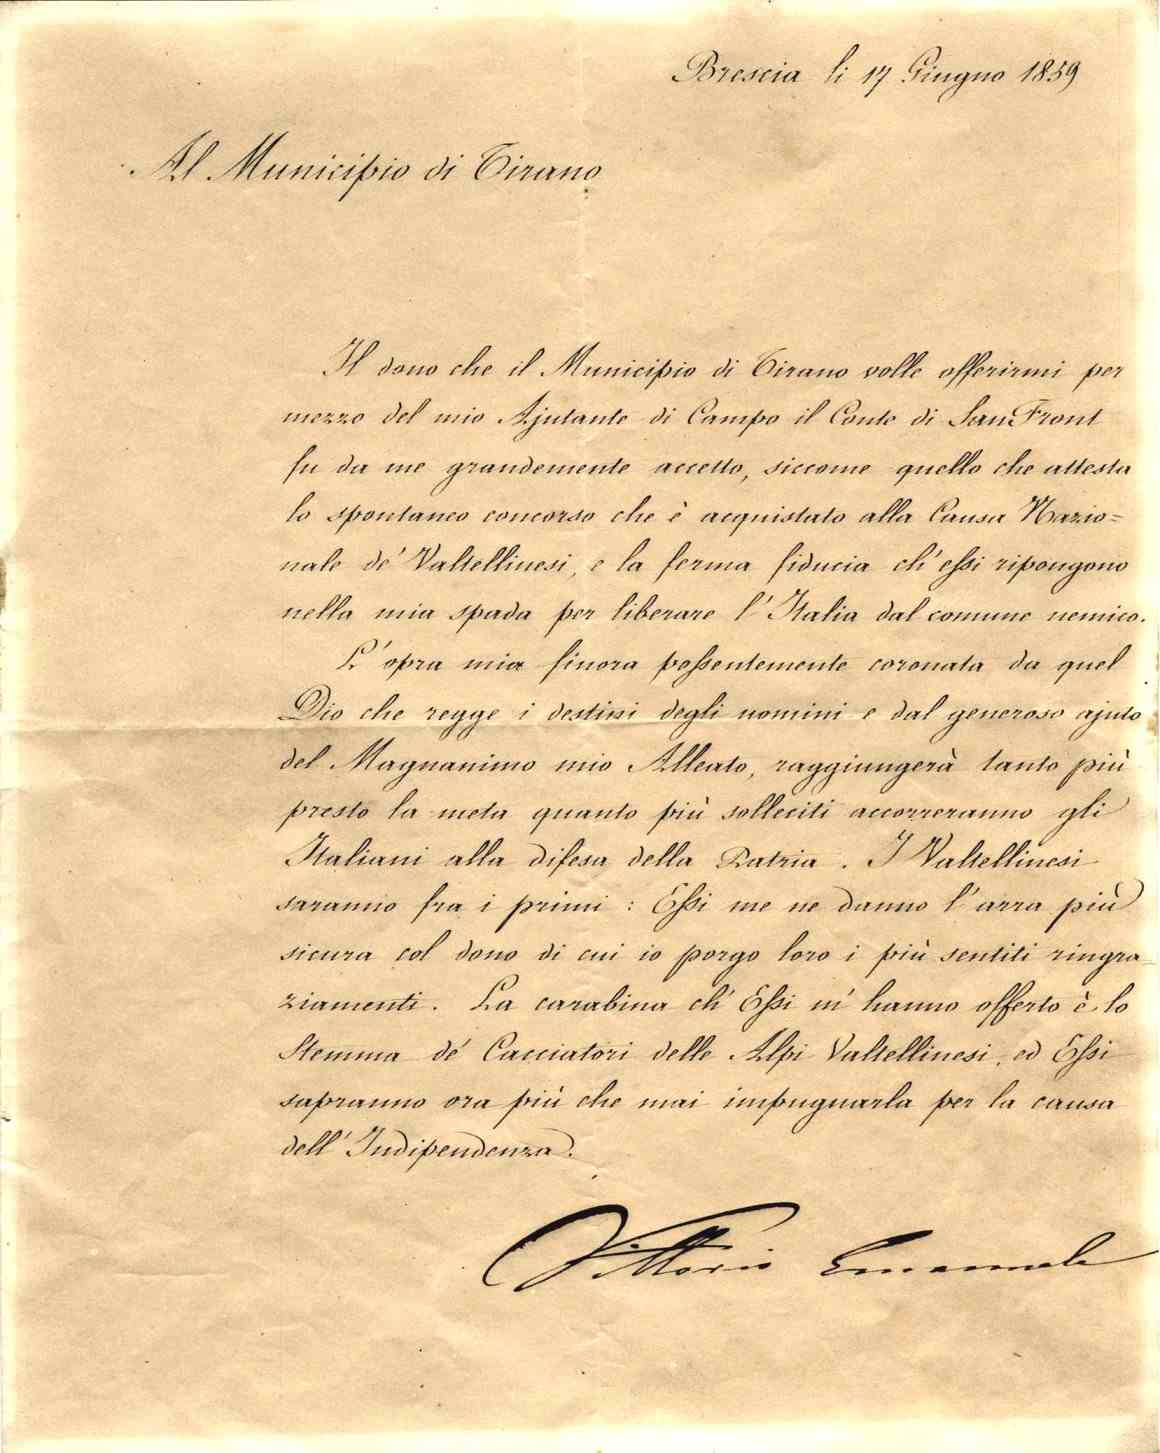 Brescia li 17 Giugno 1859
Al Municipio di Tirano
Il dono che il Municipio di Tirano volle offerirmi per
mezzo del mio Ajutante di Campo il Conte di San Front
fu da me grandemente accetto, siccome quello che attesta
lo spontaneo concorso che è acquistato alla Causa Nazio=
nale de' Valtellinesi, e la ferma fiducia ch' essi ripongono
nella mia spada per liberare l' Italia dal comune nemico.
L' opra mia finora possentemente coronata da quel
Dio che regge i destini degli uomini e dal generoso ajuto
del Magnanimo mio Alleato, raggiungerà tanto più
presto la meta quanto più solleciti accorreranno gli
Italiani alla difesa della Patria. I Valtellinesi
saranno fra i primi: Essi me ne danno l' arra più
sicura col dono di cui io porgo loro i più sentiti ringra-
ziamenti. La carabina ch' Essi m' hanno offerto è lo
Stemma de' Cacciatori delle Alpi Valtellinesi, ed Essi
sapranno ora più che mai impugnarla per la causa
dell' Indipendenza.
Vittorio Emanuele